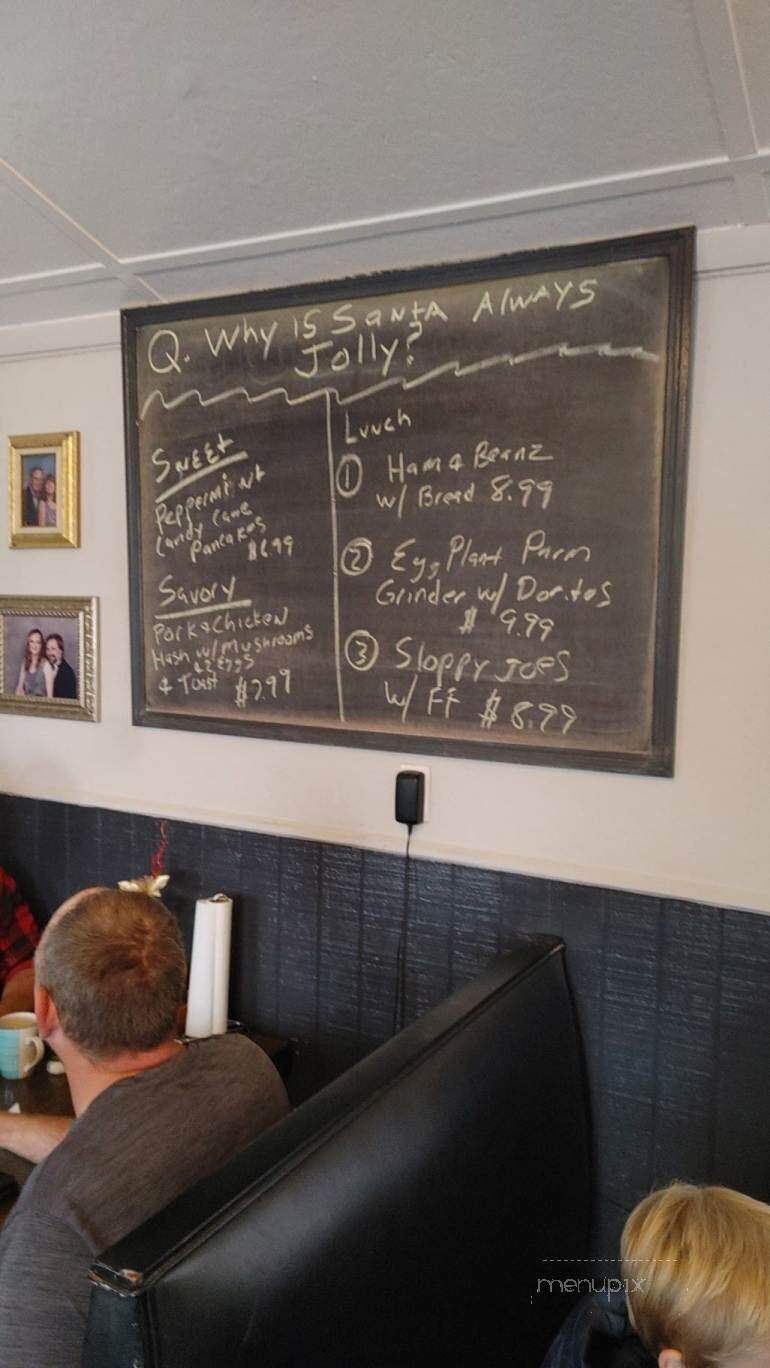 Q. Why is Santa Always
Jolly?
Sweet
Peppermint
Candy Cane
Pancakes
$6.99
Savory
Pork & Chicken
Hash w/ Mushrooms
& 2 Eggs
& Toast $7.99
Lunch
1 Ham & Beanz
w/ Bread 8.99
2 Egg Plant Parm
Grinder w/ Doritos
$ 9.99
3 Sloppy Joes
w/ FF $8.99
menupix